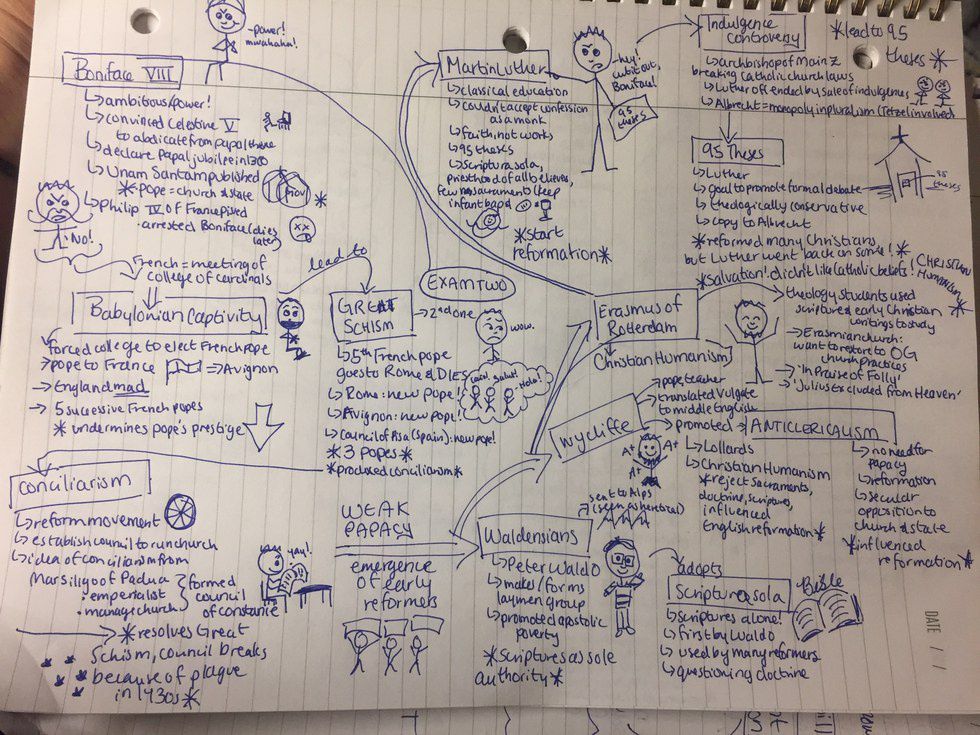 -power!
mwahaha!
Boniface VIII
↳ambitious/power!
↳convinced Celestine V
to abdicate from papal throne
↳declare Papal jubilee in 1300
↳Unam Santam published
*pope = church & state
gov
*
↳Philip IV of France pissed
·arrested Boniface (dies
later)
No!
French = meeting of
college of cardinals
lead to
Babylonian Captivity
↳forced college to elect French pope
→pope to France ⇒ Avignon
→England mad
→ 5 successive French popes
* undermines pope's prestige
Conciliarism
↳reform movement
↳establish council to run church
↳idea of conciliarism from
Marsiligo of Padua
·emperialist
·manage church
formed
council
of constance
yay!
*resolves Great
Schism, council breaks
because of plague
in 1430s*
EXAM TWO
GREAT
SCHISM
→2nd one
wow.
↳5th French pope
goes to Rome & DIES
↳Rome: new pope!
↳Avignon: new pope!
↳council of Pisa (Spain): new pope!
*3 popes*
*produced conciliarism*
ciao!
Salut!
Hola!
WEAK
PAPACY
emergence
of early
reformers
Martin Luther
↳classical education
↳couldn't accept confession
as a monk
↳faith, not works
↳95 theses
↳Scriptura sola,
priesthood of all believes,
few no sacrament (keep
infant bapt
*start
reformation*
-hey!
cut it out,
Boniface!
95
theses
Indulgence
controversy
*lead to 95
theses *
↳archbishop of Mainz
breaking Catholic church laws
↳Luther offended by sale of indulgences
↳Albrecht = monopoly in pluralism (Tetzel involved)
95 Theses
↳Luther
↳goal to promote formal debate
↳theologically conservative
↳copy to Albrecht
*reformed many Christians
but Luther went back on some! *
*Salvation! didn't like Catholic beliefs!
95
theses
Erasmus of
Rotterdam
Christian Humanism
CHRISTIAN
Humanism
*
↳theology students used
scripture & early Christian
writings to study
↳Erasmian church:
want to retort to OG
church practices
→'In Praise of Folly'
→'Julius Excluded from Heaven'
Wycliffe
→pope teacher
→translated Vulgate
to middle English
→promoted →
ANTICLERICALISM
A+
A+
A+
A+
↳Lollards
↳Christian Humanism
*reject sacraments,
doctrine, scriptures,
influenced
English reformation*
↳no need for
papacy
↳reformation
↳secular
opposition to
church & state
*influenced
reformation*
sent to Alps
(seen as heretical)
Waldensians
↳Peter Waldo
↳makes/forms
laymen group
↳promoted apostolic
poverty
*Scriptures as sole
authority*
adopts
Scriptura sola
↳scriptures alone!
↳first by Waldo
↳used by many reformers
↳questioning doctrine
Bible
DATE / /